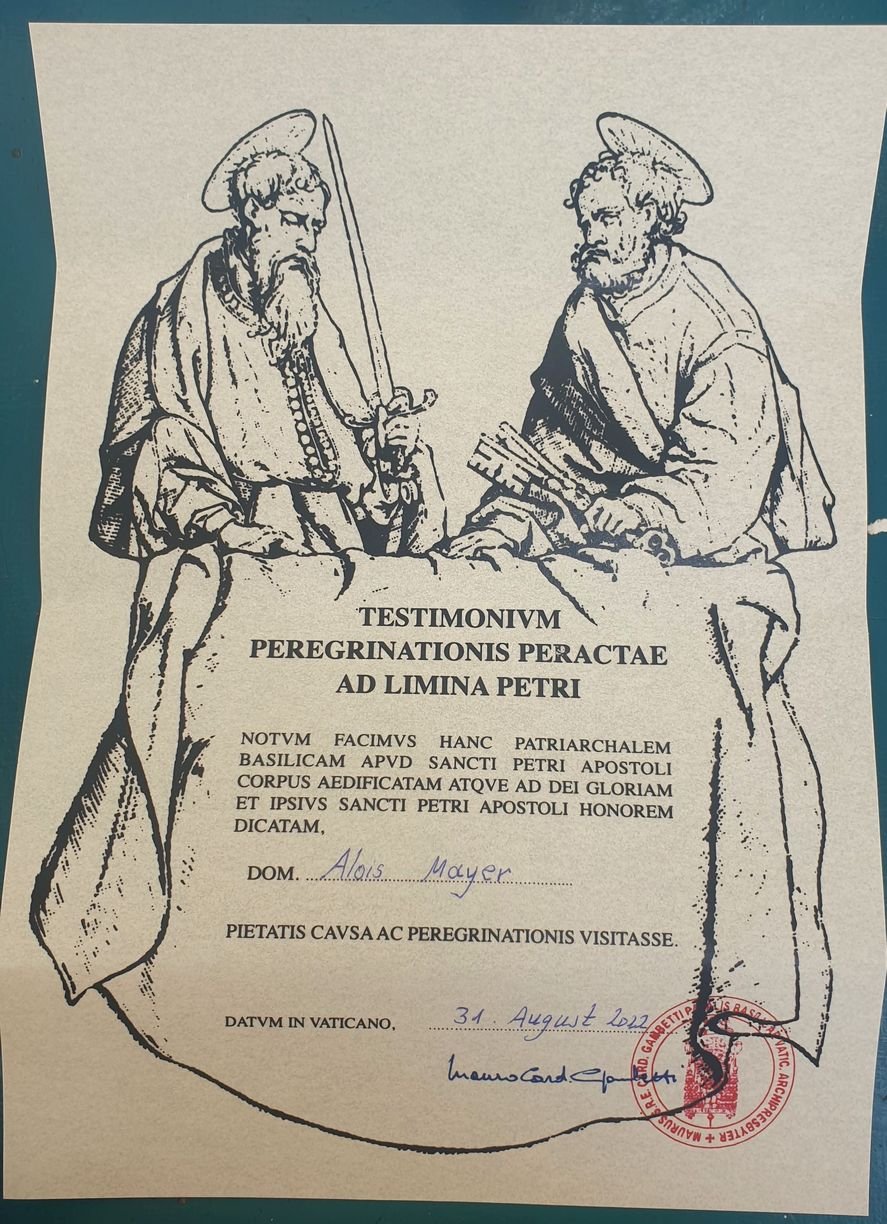 TESTIMONIVM
PEREGRINATIONIS PERACTAE
AD LIMINA PETRI
NOTVM FACIMVS HANC PATRIARCHALEM
BASILICAM APVD SANCTI PETRI APOSTOLI
CORPUS AEDIFICATAM ATQVE AD DEI GLORIAM
ET IPSIVS SANCTI PETRI APOSTOLI HONOREM
DICATAM,
DOM. Alois Mayer
PIETATIS CAVSA AC PEREGRINATIONIS VISITASSE.
DATVM IN VATICANO, 31. August 2022
Mauro Card. Gambetti
MAURUS S.R.E. CARD. GAMBETTI VATIC. ARCHIPRESBYTER